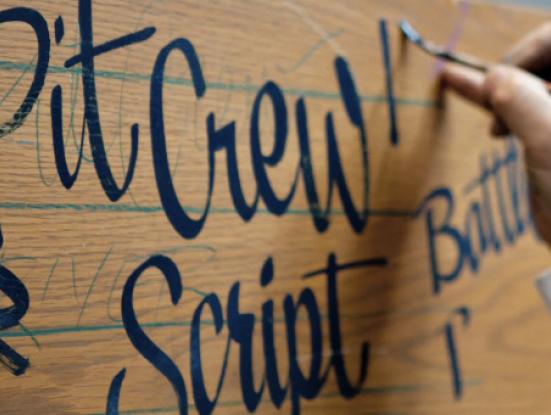 Pit Crew!
Script
Battl